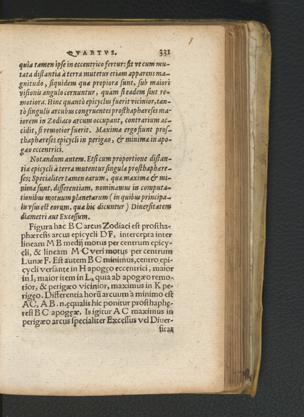 QVARTVS. 331
quia tamen ipse in eccentrico fertur: fit vt cum mu-
tata distantia à terra mutetur etiam apparens ma-
gnitudo, siquidem quæ propiora sunt, sub maiore
visionis angulo cernuntur, quàm si eadem sint re-
motiora. Hinc quantò epicyclus fuerit vicinior, tan-
tò singuli arcubus congruentes prosthaphæreses ma-
iorem in Zodiaco arcum occupant, contrarium ac-
cidit, si remotior fuerit. Maxima ergo sunt pros-
thaphæreses epicycli in perigæo, & minima in apo-
gæo eccentrici.
Notandum autem. Etsi cum proportione distan-
tia epicycli à terra mutentur singula prosthaphære-
ses; Specialiter tamen earum, qua maxima & mi-
nima sunt, differentiam, nominamus in computa-
tionibus motuum planetarum (in quibus principa-
lu vsus est earum, qua hic dicuntur) Diuersitatem
diametri aut Excessum.
Figura hac B C arcus Zodiaci est prostha-
phæresis arcus epicycli D F, intercepta inter
lineam M B medij motus per centrum epicy-
cli, & lineam M C veri motus per centrum
Lunæ F. Est autem B C minimus, centro epi-
cycli versante in H apogæo eccentrici, maior
in I, maior item in L, quia ab apogæo remo-
tior, & perigæo vicinior, maximus in K pe-
rigæo. Differentia horũ arcuum à minimo est
AC, A B. n. equalis hic ponitur prosthaphæ-
resi B C apogææ. Is igitur A C maximus in
perigæo arcus specialiter Excessus vel Diuer-
sitas